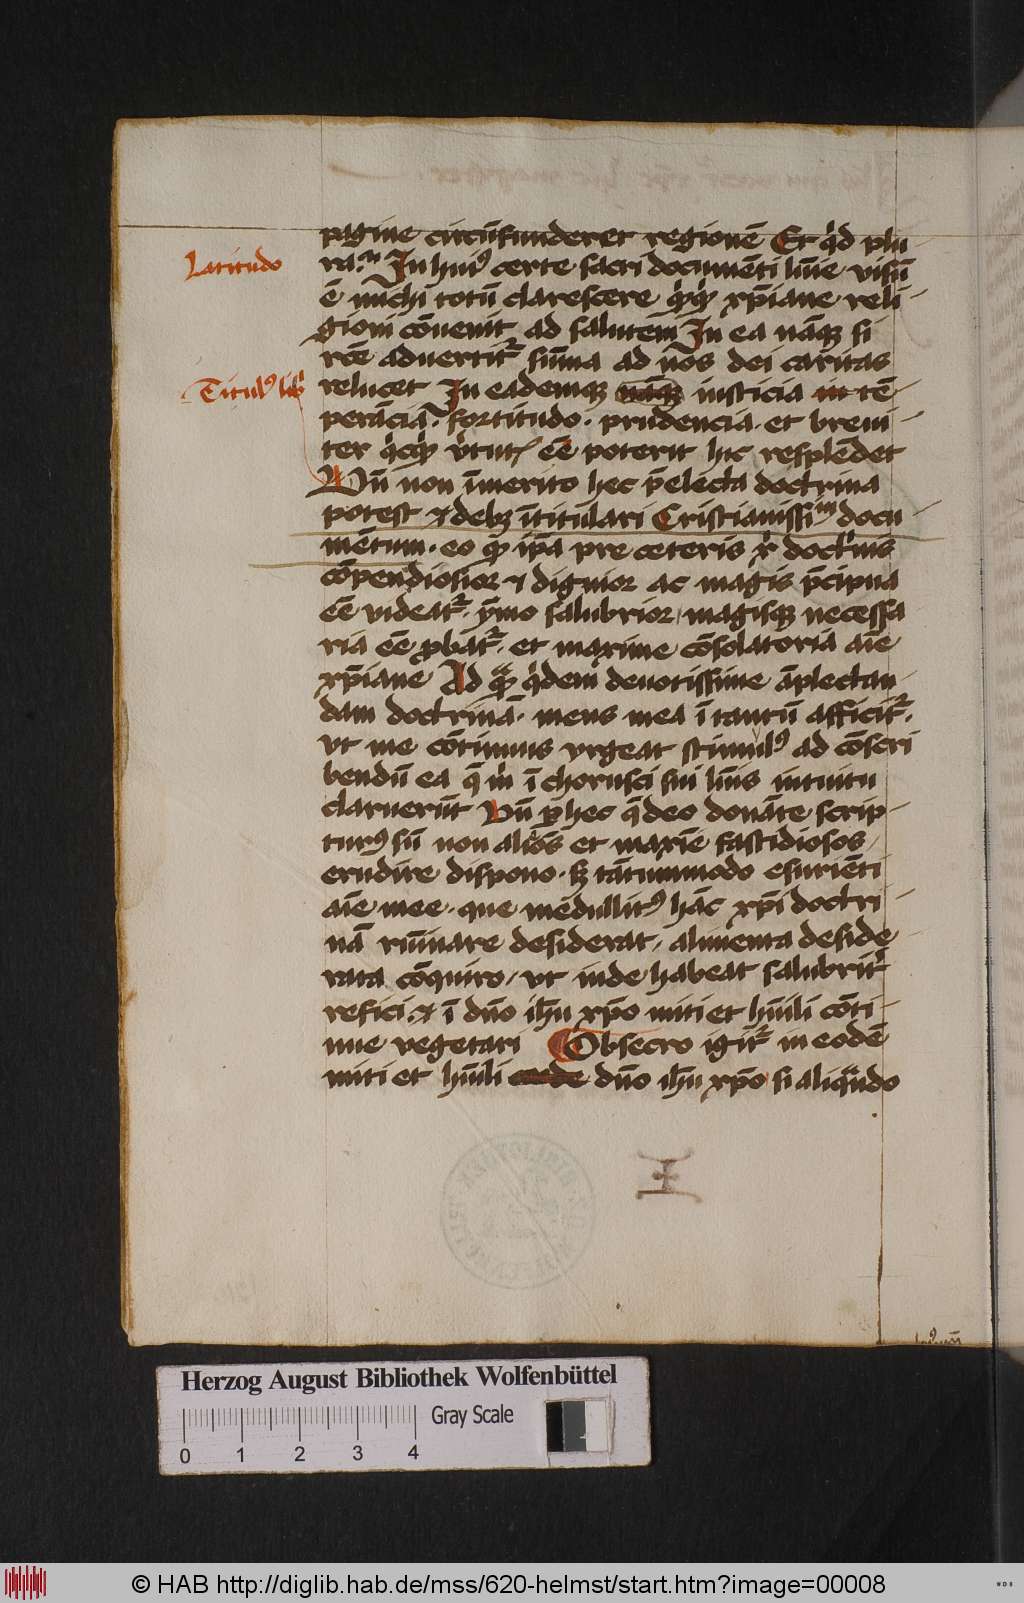 pagine circūfunderet regionē Et qd plu
Latitudo
ra.ⁿ In huiꝰ certe sacri documēti lūie visū
ē michi totū clarescere xp̄iane reli
gioni cōuenit ad salutem In ea nāqꝫ si
rcē aduertitᷣ sūma ad nos dei caritas
Titulꝰ lib
relucet In eademqꝫ iusticia tē
perācia. fortitudo. prudencia. et breui
ter v̄tut ēē poterit hic resplēdet
Vn̄ non īmerito hec p̄electa doctrina
potest ⁊ debꝫ ītitulari Cristianissiᵐ docu
mētum. eo ip̄a pre ceteris doctⁱnis
cōpendiosior ⁊ dignior ac magis p̄cipua
ēē videatᷣ. ymo salubrior magisqꝫ necessa
ria ēē ꝓbatᷣ. et maxime cōsolatoria aīe
xp̄iane Ad quā qⁱdem deuotissime āplectan
dam doctrinā. mens mea ī tantū afficitᷣ.
vt me cōtinuus vrgeat stimulꝰ ad cōscri
bendū ea q̄ mⁱ ī chorusci sui lūis intuitu
claruerūt Vn̄ ꝑ hec q̄ deo donāte scrip
turꝰ sū non alios et maxīe fastidiosos
erudire dispono. sꝫ tātummodo esuriēti
aīe mee. que medullitꝰ hāc xp̄i doctri
nā rūinare desiderat, alimenta deside
rata cōquiro, vt inde habeat salubritᷣ
refici. ⁊ ī dn̄o ih̄u xp̄o miti et hūili cōti
nue vegetari Obsecro igitᷣ in eodē
miti et hūili dn̄o ih̄u xp̄o si aliquādo
Herzog August Bibliothek Wolfenbüttel
Gray Scale
0 1 2 3 4
© HAB http://diglib.hab.de/mss/620-helmst/start.htm?image=00008